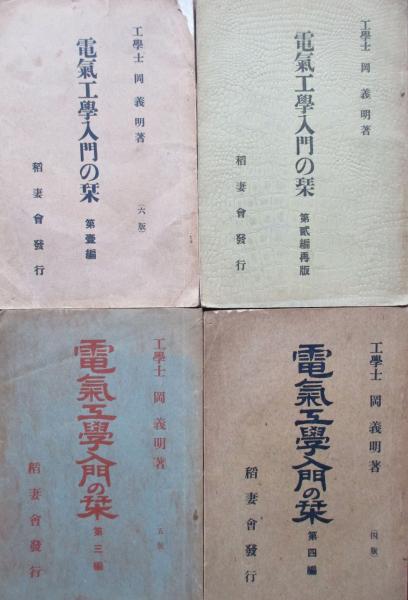 工學士 岡義明著
電氣工學入門の栞 第壹編
(六版)
稻妻會發行
工學士 岡義明著
電氣工學入門の栞 第貳編再版
稻妻會發行
工學士 岡義明著
電氣工學入門の栞 第三編
五版
稻妻會發行
工學士 岡義明著
電氣工學入門の栞 第四編
(四版)
稻妻會發行